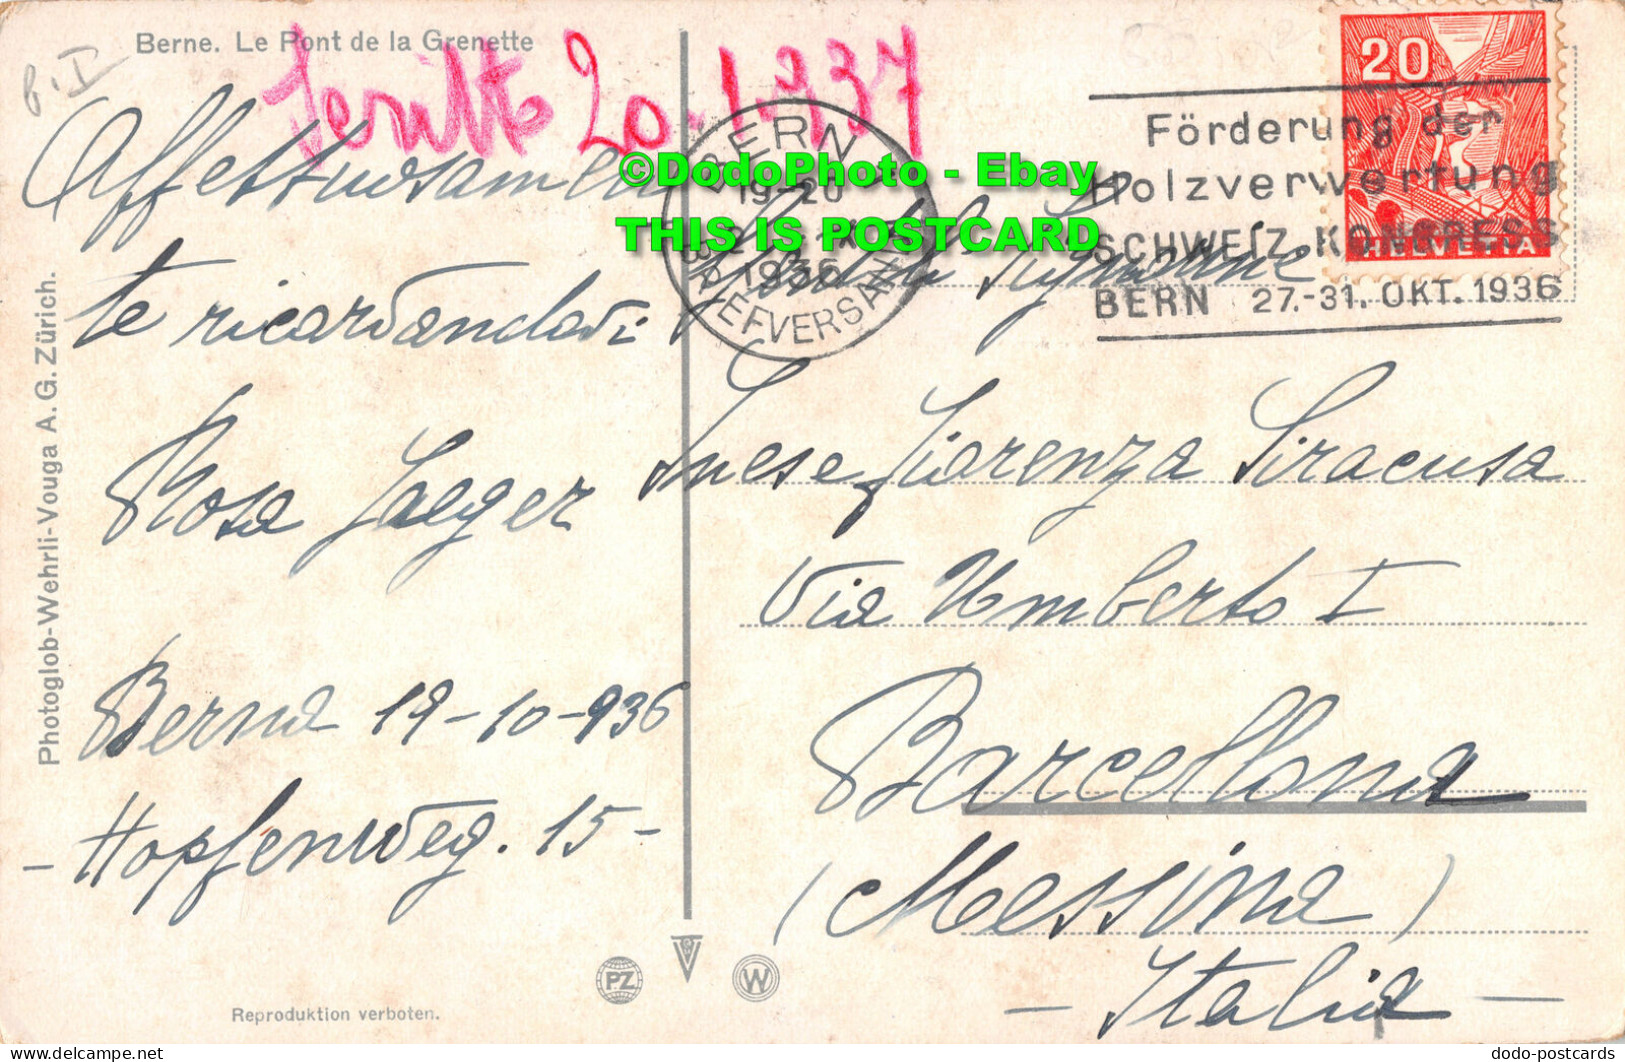 Berne. Le Pont de la Grenette
Scritto 20.1.937
Affettuosamen
te ricordandovi
Rosa Jaeger
Berna 19-10-936
- Hopfenweg. 15 -
Photoglob-Wehrli-Vouga A. G. Zürich.
Reproduktion verboten.
PZ
W
BERN
19-20
1936
BRIEFVERSAND
Förderung der
Holzverwertung
SCHWEIZ. KONGRESS
BERN 27.-31. OKT. 1936
20
HELVETIA
©DodoPhoto - Ebay
THIS IS POSTCARD
Gentil Signorine
Inese, Fiorenza Siracusa
Via Umberto I
Barcellona
(Messina)
- Italia -
dodo-postcards